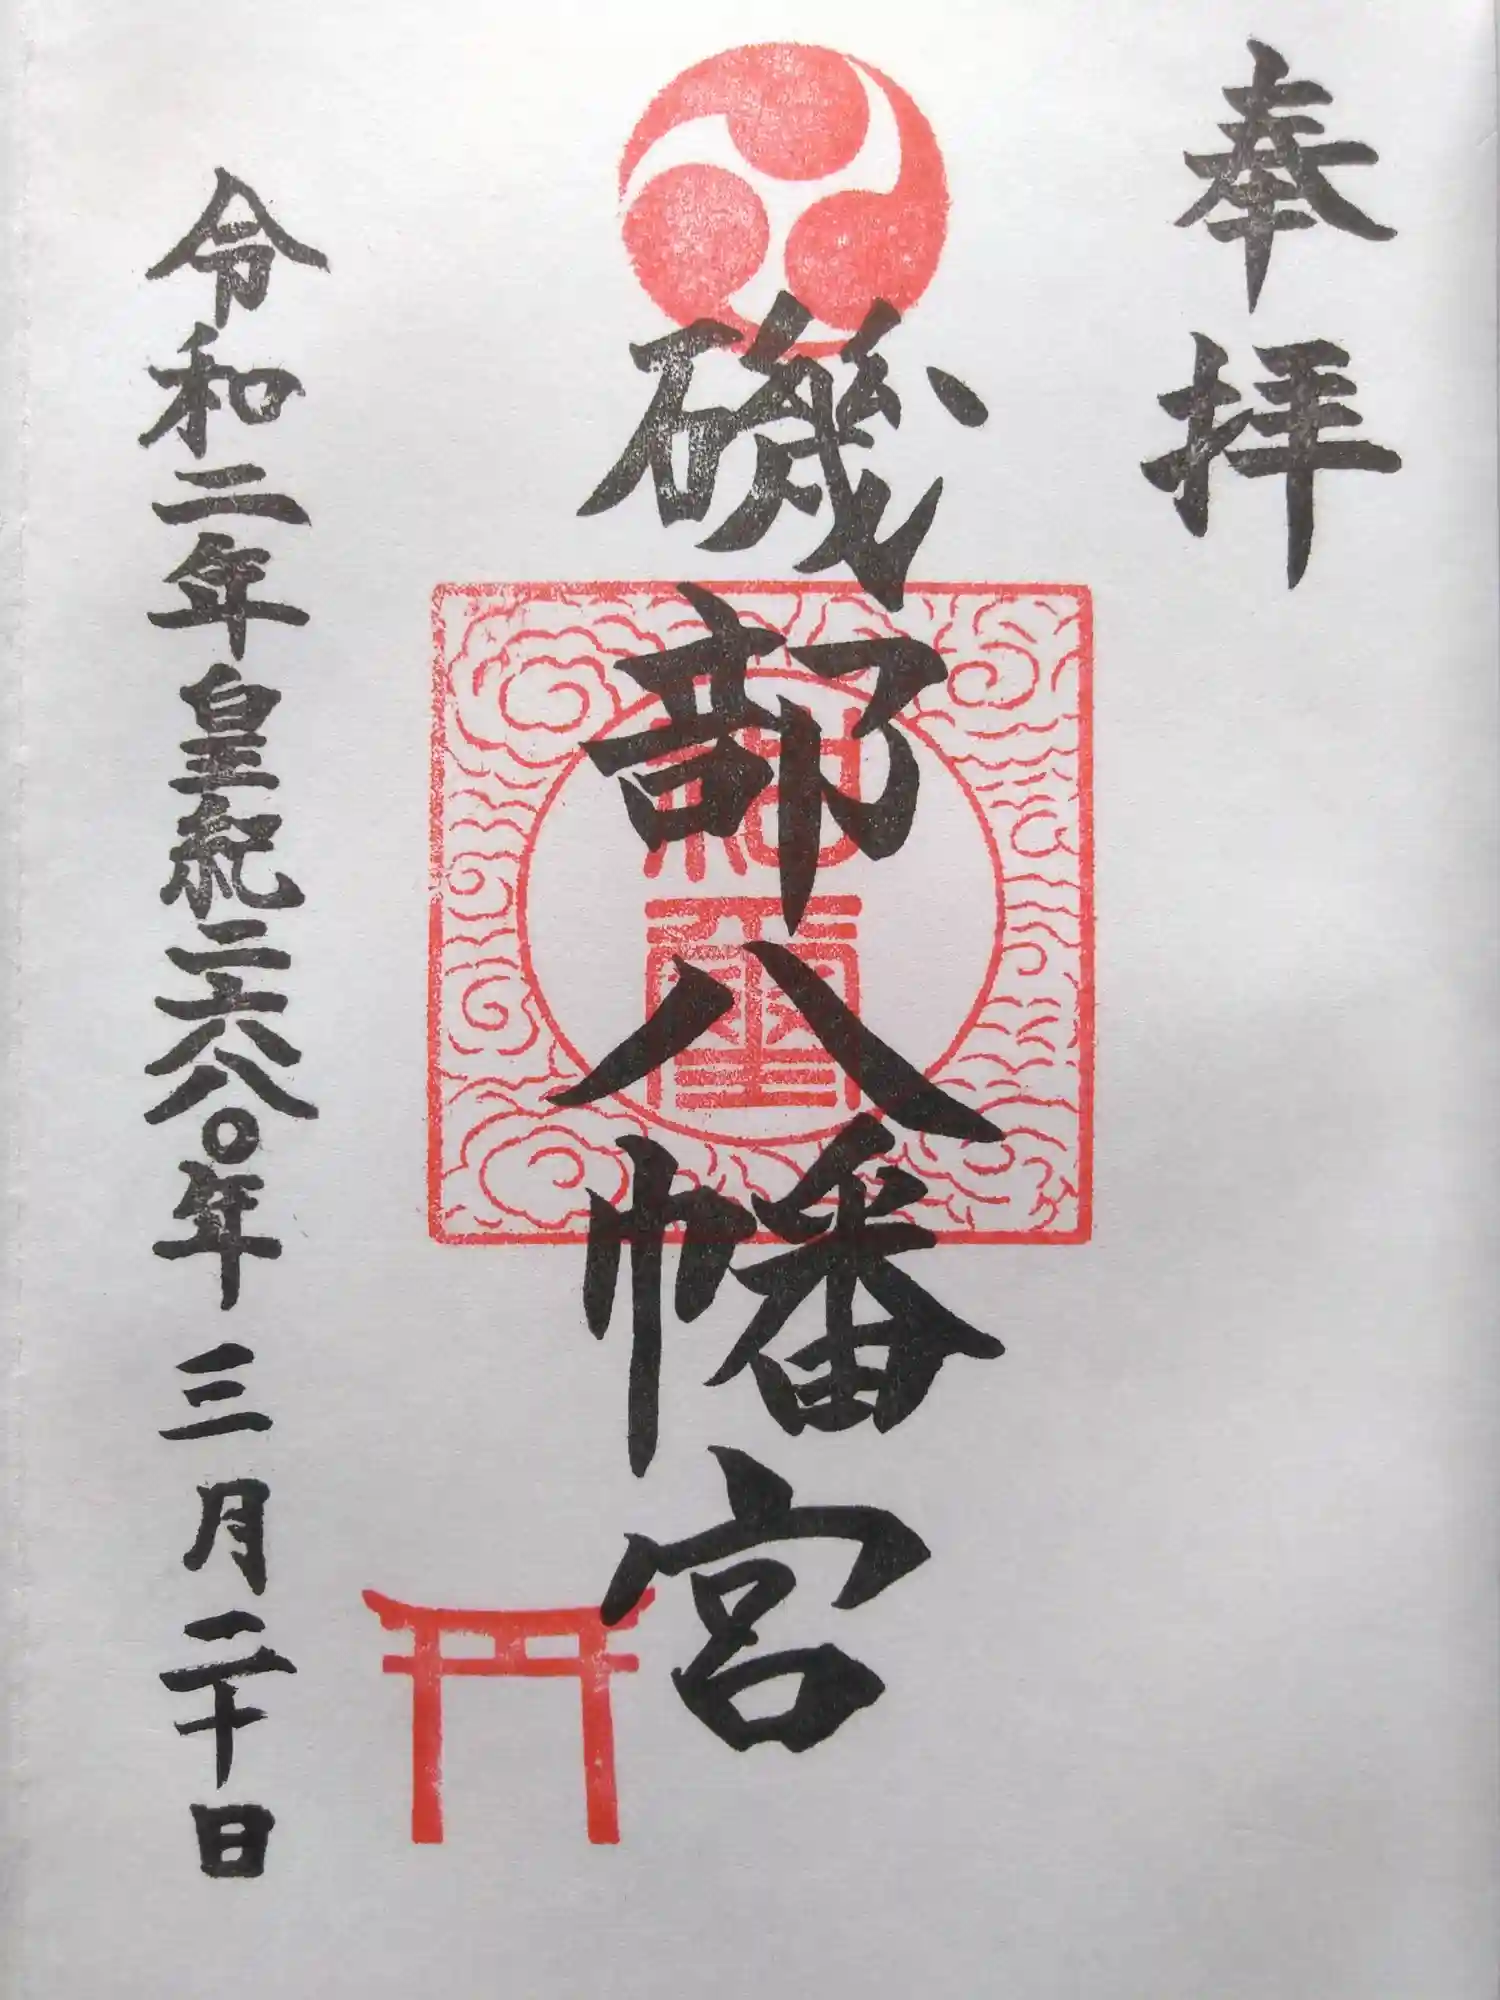 奉拝
磯部八幡宮
神璽
令和二年皇紀二六八〇年三月二十日